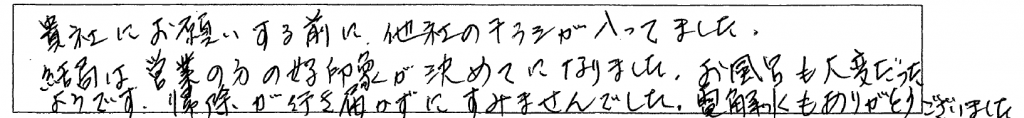 貴社にお願いする前に、他社のチラシが入ってました。
結局は営業の方の好印象が決めてになりました。お風呂も大変だった
ようです。掃除が行き届かずにすみませんでした。電解水もありがとうございました